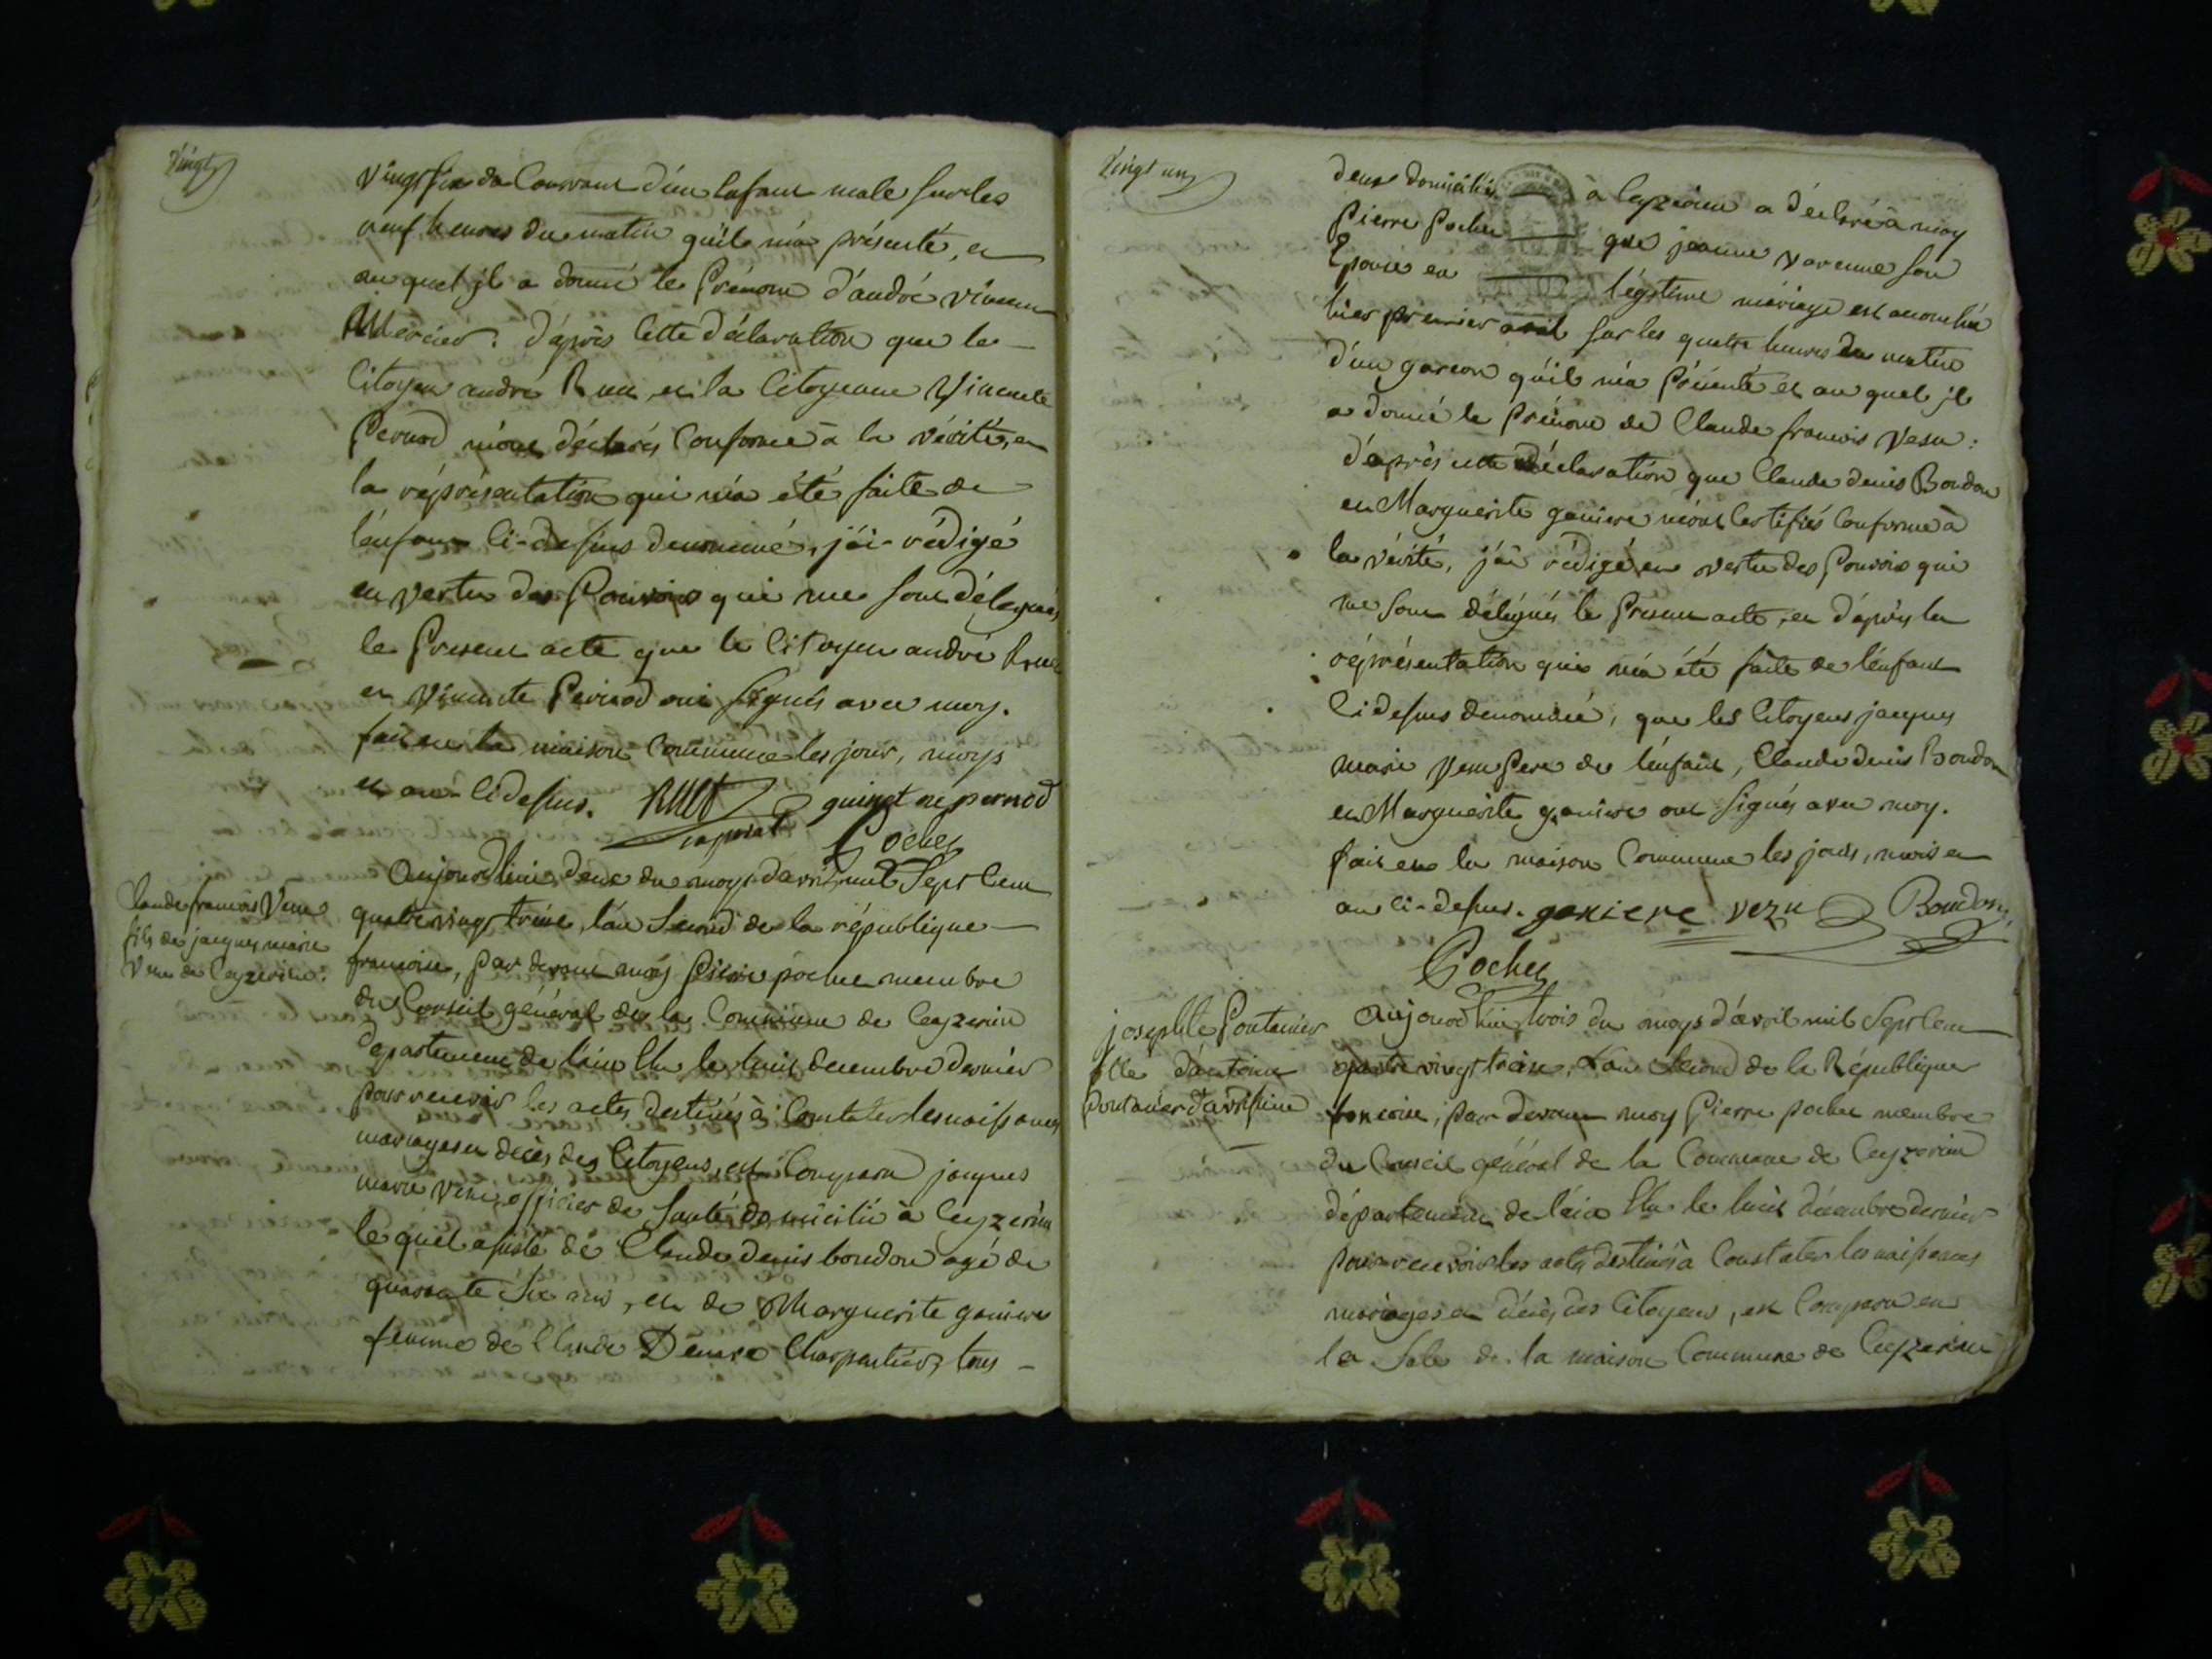 Vingt
vingt six du Courant d'un Enfant male sur les
neuf heures du matin qu'il m'a présenté, et
au quel il a donné le Prénom d'andré vincent
Mercier. d'après Cette déclaration que le
Citoyen andré Ruet, et la Citoyenne Vincente
Pernod m'ont déclarés Conforme à la vérité, et
la réprésentation qui m'a été faite de
l'enfant Ci-dessus denommé, j'ai rédigé
en vertu des Pouvoirs qui me sont délégués
le Present acte que le Citoyen andré Ruet
et Vincente Pernod ont signés avec moy.
fait en la maison Commune les jour, moys
et an Ci dessus. RUET guinet né pernod
Pochet
Claude francois Vezu
fils de jacques marie
Vezu de Ceyzeriat:
Aujourd'hui deux du moys d'avril mil Sept Cent
quatre vingt treize, l'an Second de la république
francoise, par devant moy Pierre pochet membre
du Conseil général de la Commune de Ceyzeriat
département de l'ain Elu le huit decembre dernier
pour recevoir les actes destinés à Constater les naissances
mariages et décès des Citoyens, est Comparu jacques
marie Vezu officier de santé domicilié à Ceyzeriat
le quel assisté de Claude denis boudon agé de
quarante six ans, et de Marguerite ganiere
femme de Claude Charpentier, tous
Vingt un
deux domiciliés à Ceyzeriat a déclaré à moy
Pierre Pochet que jeanne varenne son
Epouse en légitime mariage est accouchée
hier premier avril sur les quatre heures du matin
d'un garcon qu'il m'a présenté et au quel il
a donné le Prénom de Claude francois Vezu:
d'après cette déclaration que Claude denis Boudon
et Marguerite ganiere m'ont Certifiés Conforme à
la vérité, j'ai rédigé en vertu des Pouvoirs qui
me sont délégués le Present acte, et d'après la
réprésentation qui m'a été faite de l'enfant
Ci dessus denommé, que les Citoyens jacques
marie Vezu Pere de l'enfant, Claude denis Boudon
et Marguerite ganiere ont signés avec moy.
fait en la maison Commune les jour, mois et
an ci-dessus. ganiere vezu Boudon
Pochet
josephte Pontanier
fille d'antoine
Pontanier
Aujourd'hui trois du moys d'avril mil Sept Cent
quatre vingt treize, L'an Second de la République
francoise, par devant moy Pierre pochet membre
du Conseil général de la Commune de Ceyzeriat
département de l'ain Elu le huit décembre dernier
pour recevoir les actes destinés à Constater les naissances
mariages et décès des Citoyens, est Comparu en
la Sale de la maison Commune de Ceyzeriat